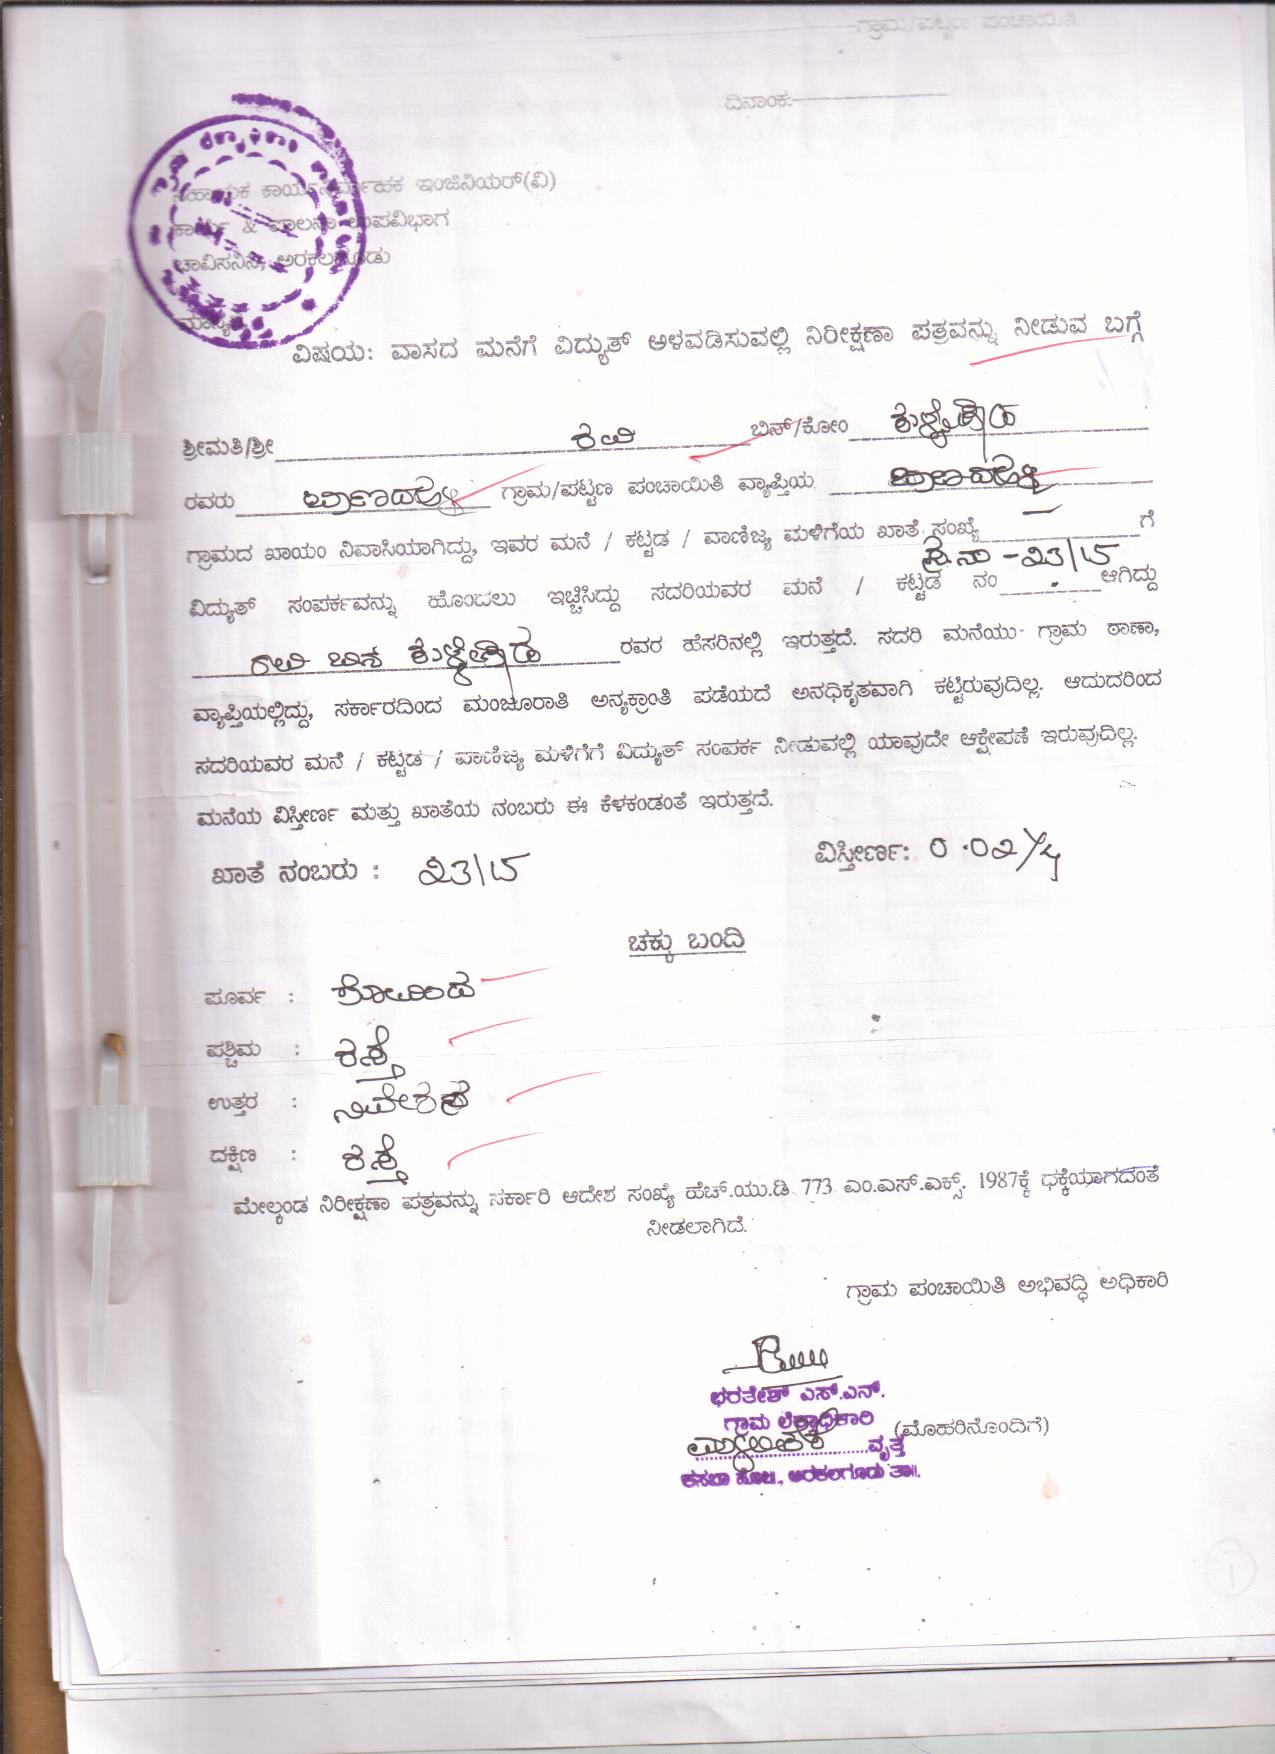 ಗ್ರಾಮ/ಪಟ್ಟಣ ಪಂಚಾಯಿತಿ
ದಿನಾಂಕ:
ಸಹಾಯಕ ಕಾರ್ಯನಿರ್ವಾಹಕ ಇಂಜಿನಿಯರ್(ವಿ)
ಕಾರ್ಯ & ಪಾಲನಾ ಉಪವಿಭಾಗ
ಚಾವಿಸನಿನಿ, ಅರಕಲಗೂಡು
ಮಾನ್ಯರೆ,
ವಿಷಯ: ವಾಸದ ಮನೆಗೆ ವಿದ್ಯುತ್ ಅಳವಡಿಸುವಲ್ಲಿ ನಿರೀಕ್ಷಣಾ ಪತ್ರವನ್ನು ನೀಡುವ ಬಗ್ಗೆ
ಶ್ರೀಮತಿ/ಶ್ರೀ ರವಿ ಬಿನ್/ಕೋಂ
ರವರು ಗ್ರಾಮ/ಪಟ್ಟಣ ಪಂಚಾಯಿತಿ ವ್ಯಾಪ್ತಿಯ
ಗ್ರಾಮದ ಖಾಯಂ ನಿವಾಸಿಯಾಗಿದ್ದು, ಇವರ ಮನೆ / ಕಟ್ಟಡ / ವಾಣಿಜ್ಯ ಮಳಿಗೆಯ ಖಾತೆ ಸಂಖ್ಯೆ — ಗೆ
ಸ.ನಂ - 23/15
ವಿದ್ಯುತ್ ಸಂಪರ್ಕವನ್ನು ಹೊಂದಲು ಇಚ್ಛಿಸಿದ್ದು ಸದರಿಯವರ ಮನೆ / ಕಟ್ಟಡ ನಂ ಆಗಿದ್ದು
ರವಿ ಬಿನ್ ರವರ ಹೆಸರಿನಲ್ಲಿ ಇರುತ್ತದೆ. ಸದರಿ ಮನೆಯು ಗ್ರಾಮ ಠಾಣಾ,
ವ್ಯಾಪ್ತಿಯಲ್ಲಿದ್ದು, ಸರ್ಕಾರದಿಂದ ಮಂಜೂರಾತಿ ಅನ್ಯಕ್ರಾಂತಿ ಪಡೆಯದೆ ಅನಧಿಕೃತವಾಗಿ ಕಟ್ಟಿರುವುದಿಲ್ಲ. ಆದುದರಿಂದ
ಸದರಿಯವರ ಮನೆ / ಕಟ್ಟಡ / ವಾಣಿಜ್ಯ ಮಳಿಗೆಗೆ ವಿದ್ಯುತ್ ಸಂಪರ್ಕ ನೀಡುವಲ್ಲಿ ಯಾವುದೇ ಆಕ್ಷೇಪಣೆ ಇರುವುದಿಲ್ಲ.
ಮನೆಯ ವಿಸ್ತೀರ್ಣ ಮತ್ತು ಖಾತೆಯ ನಂಬರು ಈ ಕೆಳಕಂಡಂತೆ ಇರುತ್ತದೆ.
ಖಾತೆ ನಂಬರು : 23/15 ವಿಸ್ತೀರ್ಣ: 0.02¼
ಚಕ್ಕು ಬಂದಿ
ಪೂರ್ವ :
ಪಶ್ಚಿಮ : ರಸ್ತೆ
ಉತ್ತರ : ನಿವೇಶನ
ದಕ್ಷಿಣ : ರಸ್ತೆ
ಮೇಲ್ಕಂಡ ನಿರೀಕ್ಷಣಾ ಪತ್ರವನ್ನು ಸರ್ಕಾರಿ ಆದೇಶ ಸಂಖ್ಯೆ ಹೆಚ್.ಯು.ಡಿ 773 ಎಂ.ಎಸ್.ಎಕ್ಸ್. 1987ಕ್ಕೆ ಧಕ್ಕೆಯಾಗದಂತೆ
ನೀಡಲಾಗಿದೆ.
ಗ್ರಾಮ ಪಂಚಾಯಿತಿ ಅಭಿವದ್ಧಿ ಅಧಿಕಾರಿ
ಭರತೇಶ್ ಎಸ್.ಎನ್.
ಗ್ರಾಮ ಲೆಕ್ಕಾಧಿಕಾರಿ (ಮೊಹರಿನೊಂದಿಗೆ)
ವೃತ್ತ
ಕಸಬಾ ಹೋಬಳಿ, ಅರಕಲಗೂಡು ತಾ॥.